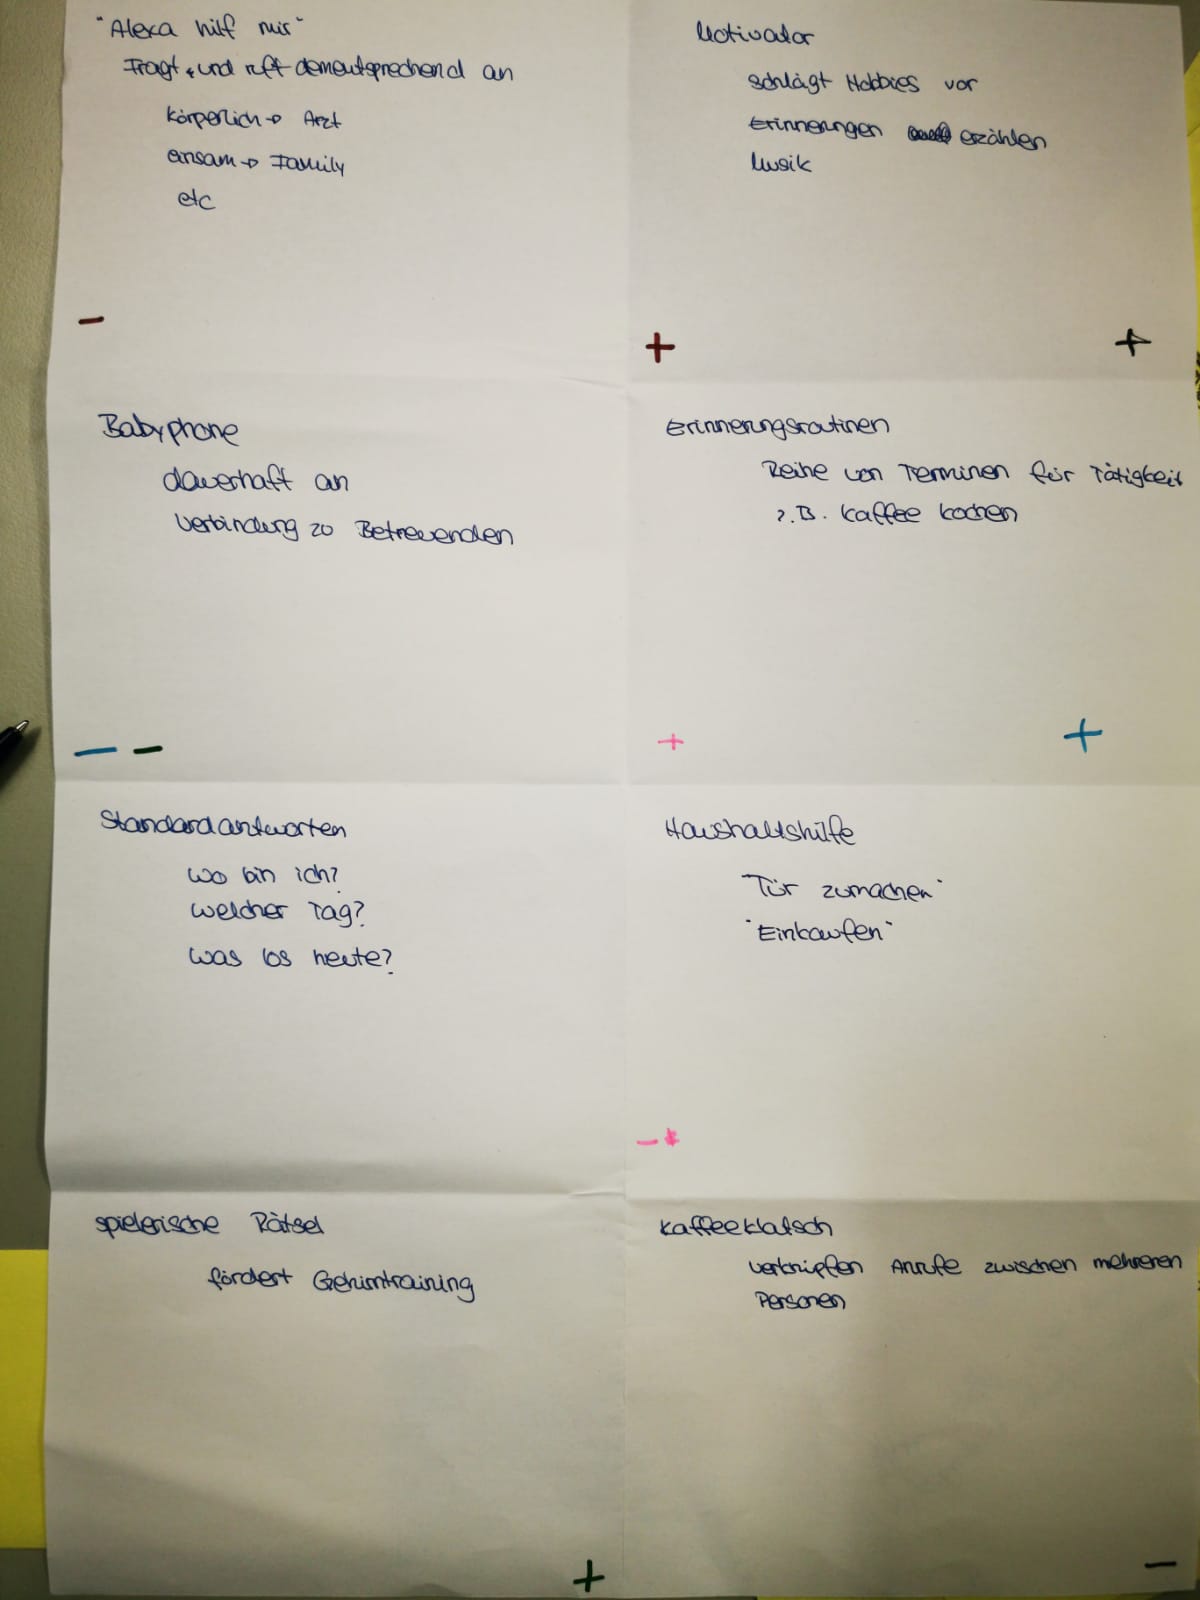 "Alexa hilf mir"
Fragt und ruft dementsprechend an
körperlich → Arzt
einsam → Family
etc
-
Motivator
schlägt Hobbies vor
Erinnerungen erzählen
Musik
+ +
Babyphone
dauerhaft an
Verbindung zu Betreuenden
- -
Erinnerungsroutinen
Reihe von Terminen für Tätigkeit
z.B. Kaffee kochen
+ +
Standardantworten
wo bin ich?
welcher Tag?
was los heute?
Haushaltshilfe
"Tür zumachen"
"Einkaufen"
-
spielerische Rätsel
fördert Gehirntraining
+
Kaffeeklatsch
verknüpfen Anrufe zwischen mehreren
Personen
-